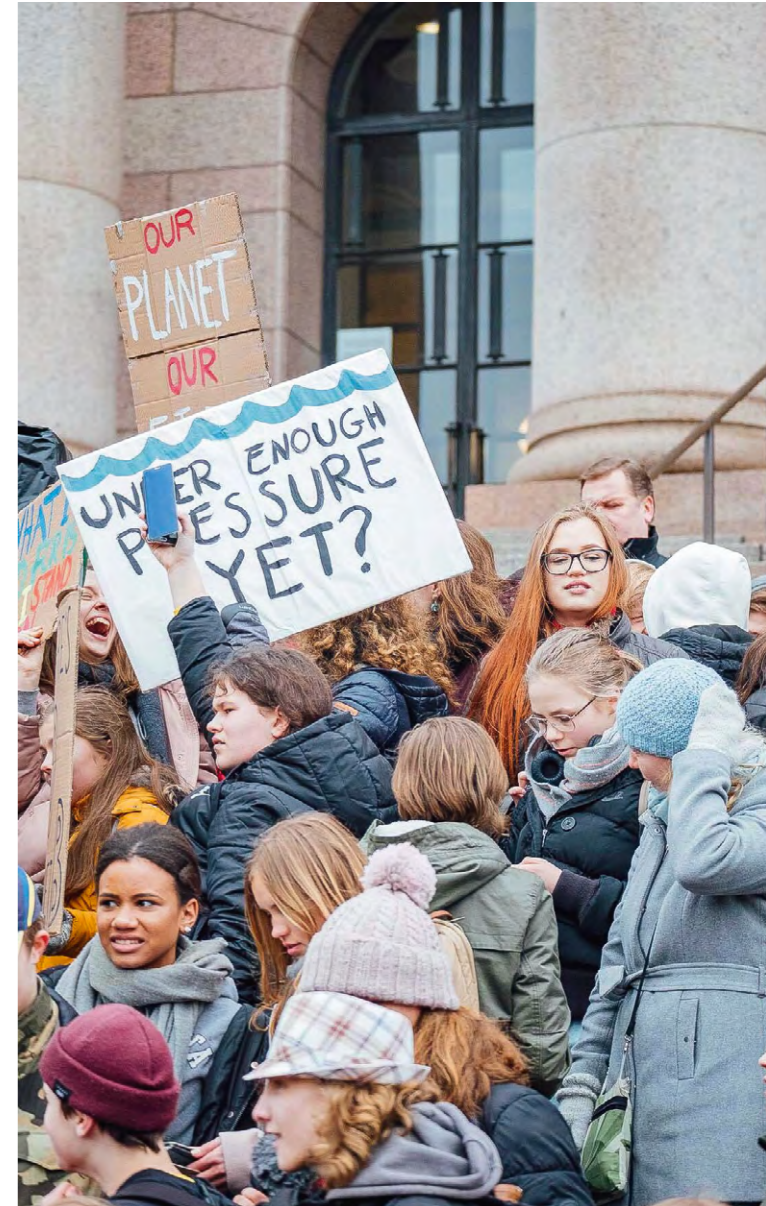 OUR
PLANET
OUR
UNDER ENOUGH
PRESSURE
YET?
STAND